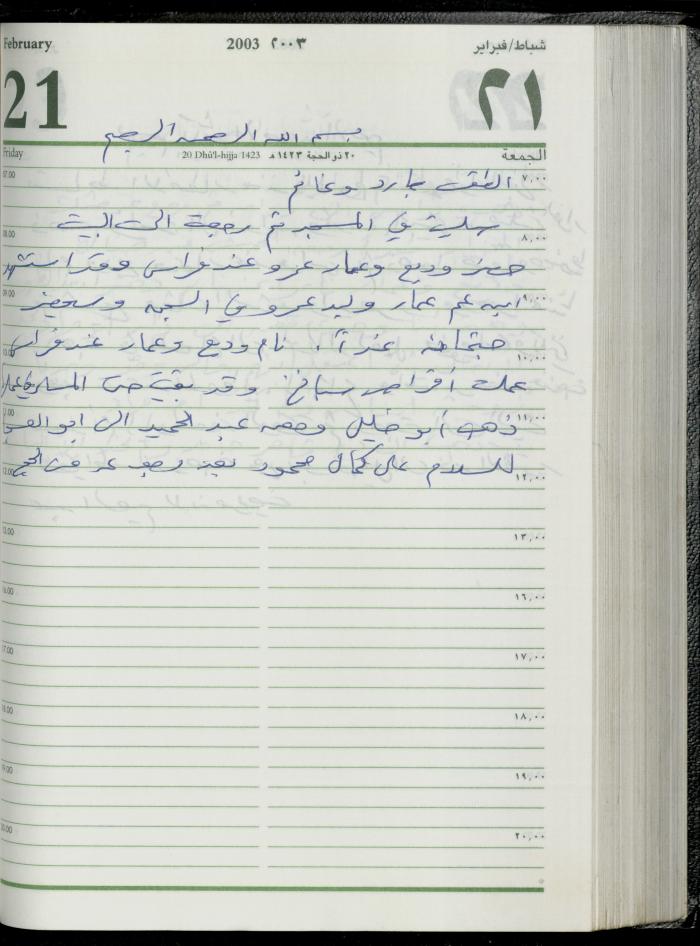 February 2003 ٢٠٠٣ شباط/فبراير
21 ٢١
بسم الله الرحمن الرحيم
Friday 20 Dhū'l-hijja 1423 ٢٠ ذو الحجة ١٤٢٣ هـ الجمعة
07.00 الطقس بارد وغائم ٧,٠٠
08.00 صليت في المسجد ثم رجعت الى البيت ٨,٠٠
حضر وديع وعمار عمرو عند فراس وقد استشهد
09.00 ابن عم عمار وليد عمرو في السجن وسيحضر ٩,٠٠
10.00 جثمانه غداً. نام وديع وعمار عند فراس ١٠,٠٠
عملت أقراص سبانخ وقد بقيت حتى المساء
ذهب أبو خليل ومعه عبد الحميد الى ابو ١١,٠٠
12.00 للسلام على كمال محمود بعد رجوعه من الحج ١٢,٠٠
13.00 ١٣,٠٠
16.00 ١٦,٠٠
17.00 ١٧,٠٠
18.00 ١٨,٠٠
19.00 ١٩,٠٠
20.00 ٢٠,٠٠